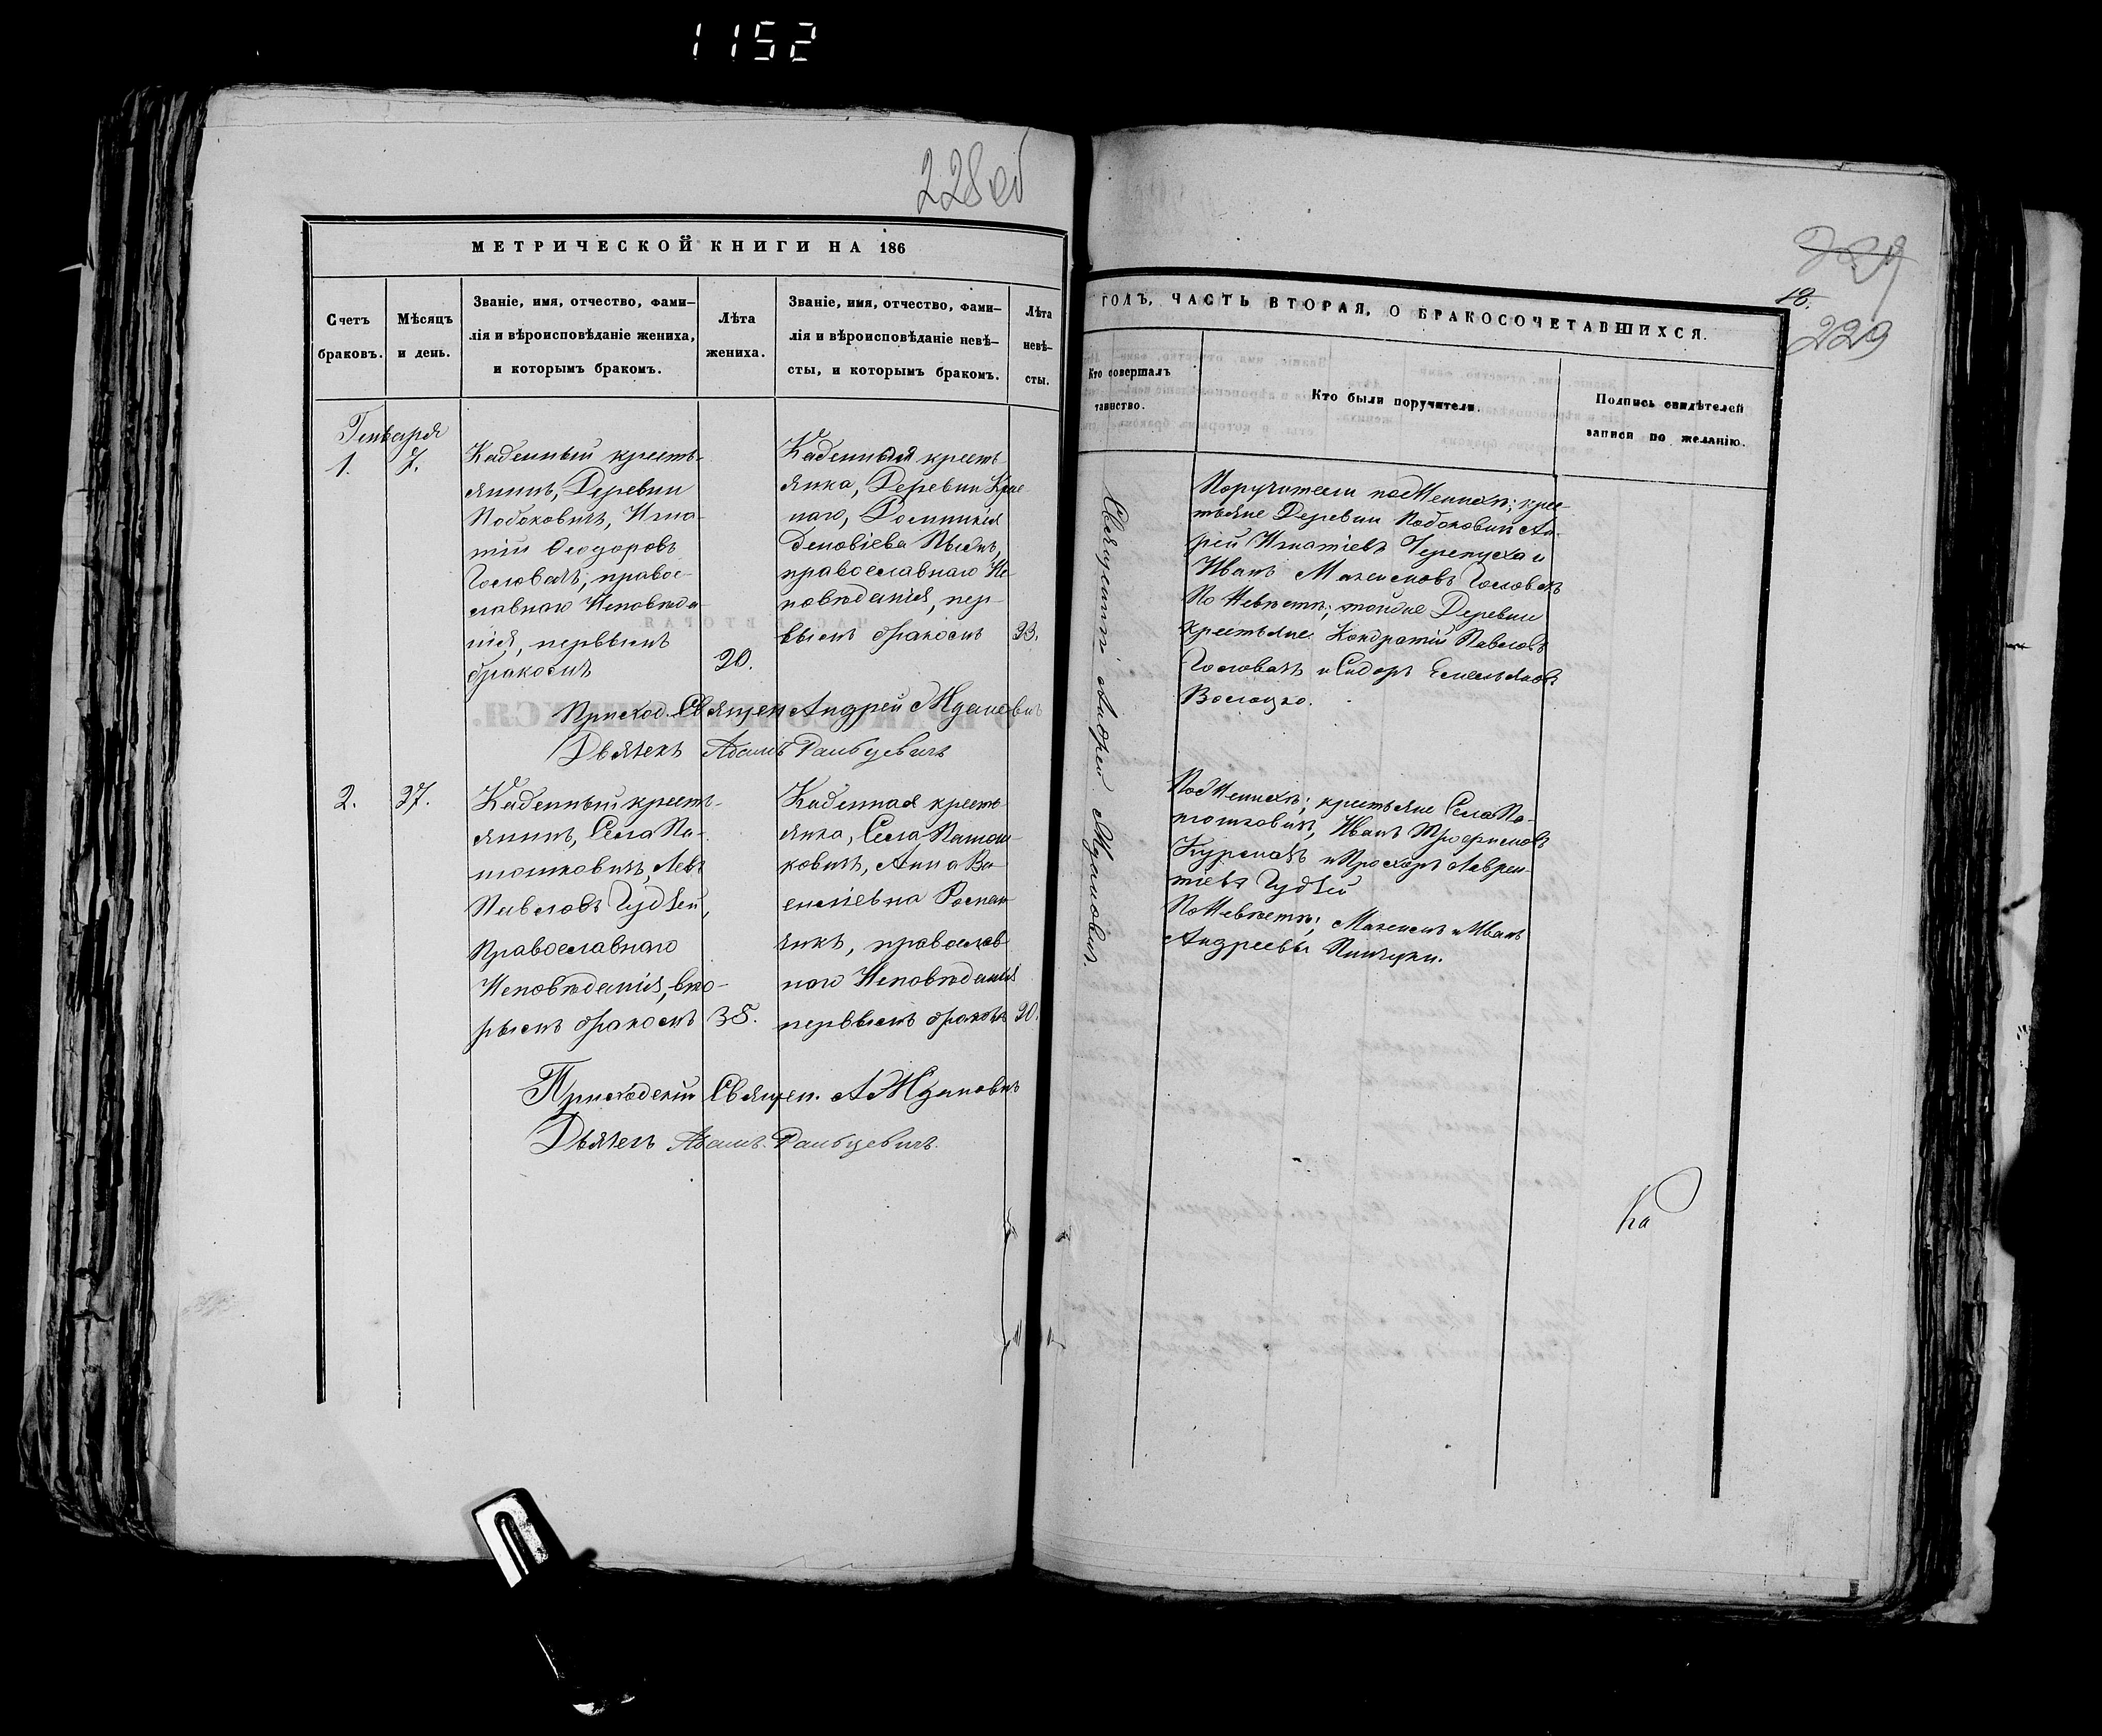 1152
228об
МЕТРИЧЕСКОЙ КНИГИ НА 186
Счетъ браковъ.
Мѣсяцъ и день.
Званіе, имя, отчество, фами-
лія и вѣроисповѣданіе жениха,
и которымъ бракомъ.
Лѣта жениха.
Званіе, имя, отчество, фами-
лія и вѣроисповѣданіе невѣ-
сты, и которымъ бракомъ.
Лѣта невѣ-
сты.
Генваря
1.
7.
Казенный кресть-
янинъ, Деревни
Побоковичъ, Игна-
тій Ѳеодоровъ
Головачъ, правос-
лавнаго Исповѣда-
нія, первымъ
бракомъ
20.
Казенная кресть-
янка, Деревни Крас-
наго,
православнаго Ис-
повѣданія, пер-
вымъ бракомъ
23.
Приход. Священ Андрей Ждановичъ
Дьячекъ Адамъ Ральцевичъ
2.
27.
Казенный кресть-
янинъ, Села Па-
тошковичъ, Левъ
Павловъ Гудзей,
Православнаго
Исповѣданія, вто-
рымъ бракомъ
35.
Казенная кресть-
янка, Села Патош-
ковичъ, Анна Ва-
силіевна
православ-
наго Исповѣданія
первымъ бракомъ
20.
Приходскій Священ. А Ждановичъ
Дьячекъ Адамъ Ральцевичъ.
18.
229
ГОДЪ, ЧАСТЬ ВТОРАЯ, О БРАКОСОЧЕТАВШИХСЯ.
Кто совершалъ
таинство.
Кто были поручители.
Подпись свидѣтелей
записи по желанію.
Священникъ Андрей Ждановичъ.
Поручители по Женихѣ; крес-
тьяне Деревни Побоковичъ Ан-
рей Игнатіевъ Черепуха и
Иванъ Максимовъ Головачъ
По Невѣстѣ; тойже Деревни
Крестьяне Кондратій Павловъ
Головачъ и Сидоръ Емельяновъ
По Женихѣ; крестьяне Села Па-
тошковичъ, Иванъ Трофимовъ
и Прохоръ Лаврен-
тіевъ Гудзей
По Невѣстѣ; Максимъ и Иванъ
Андреевы Пинчуки.